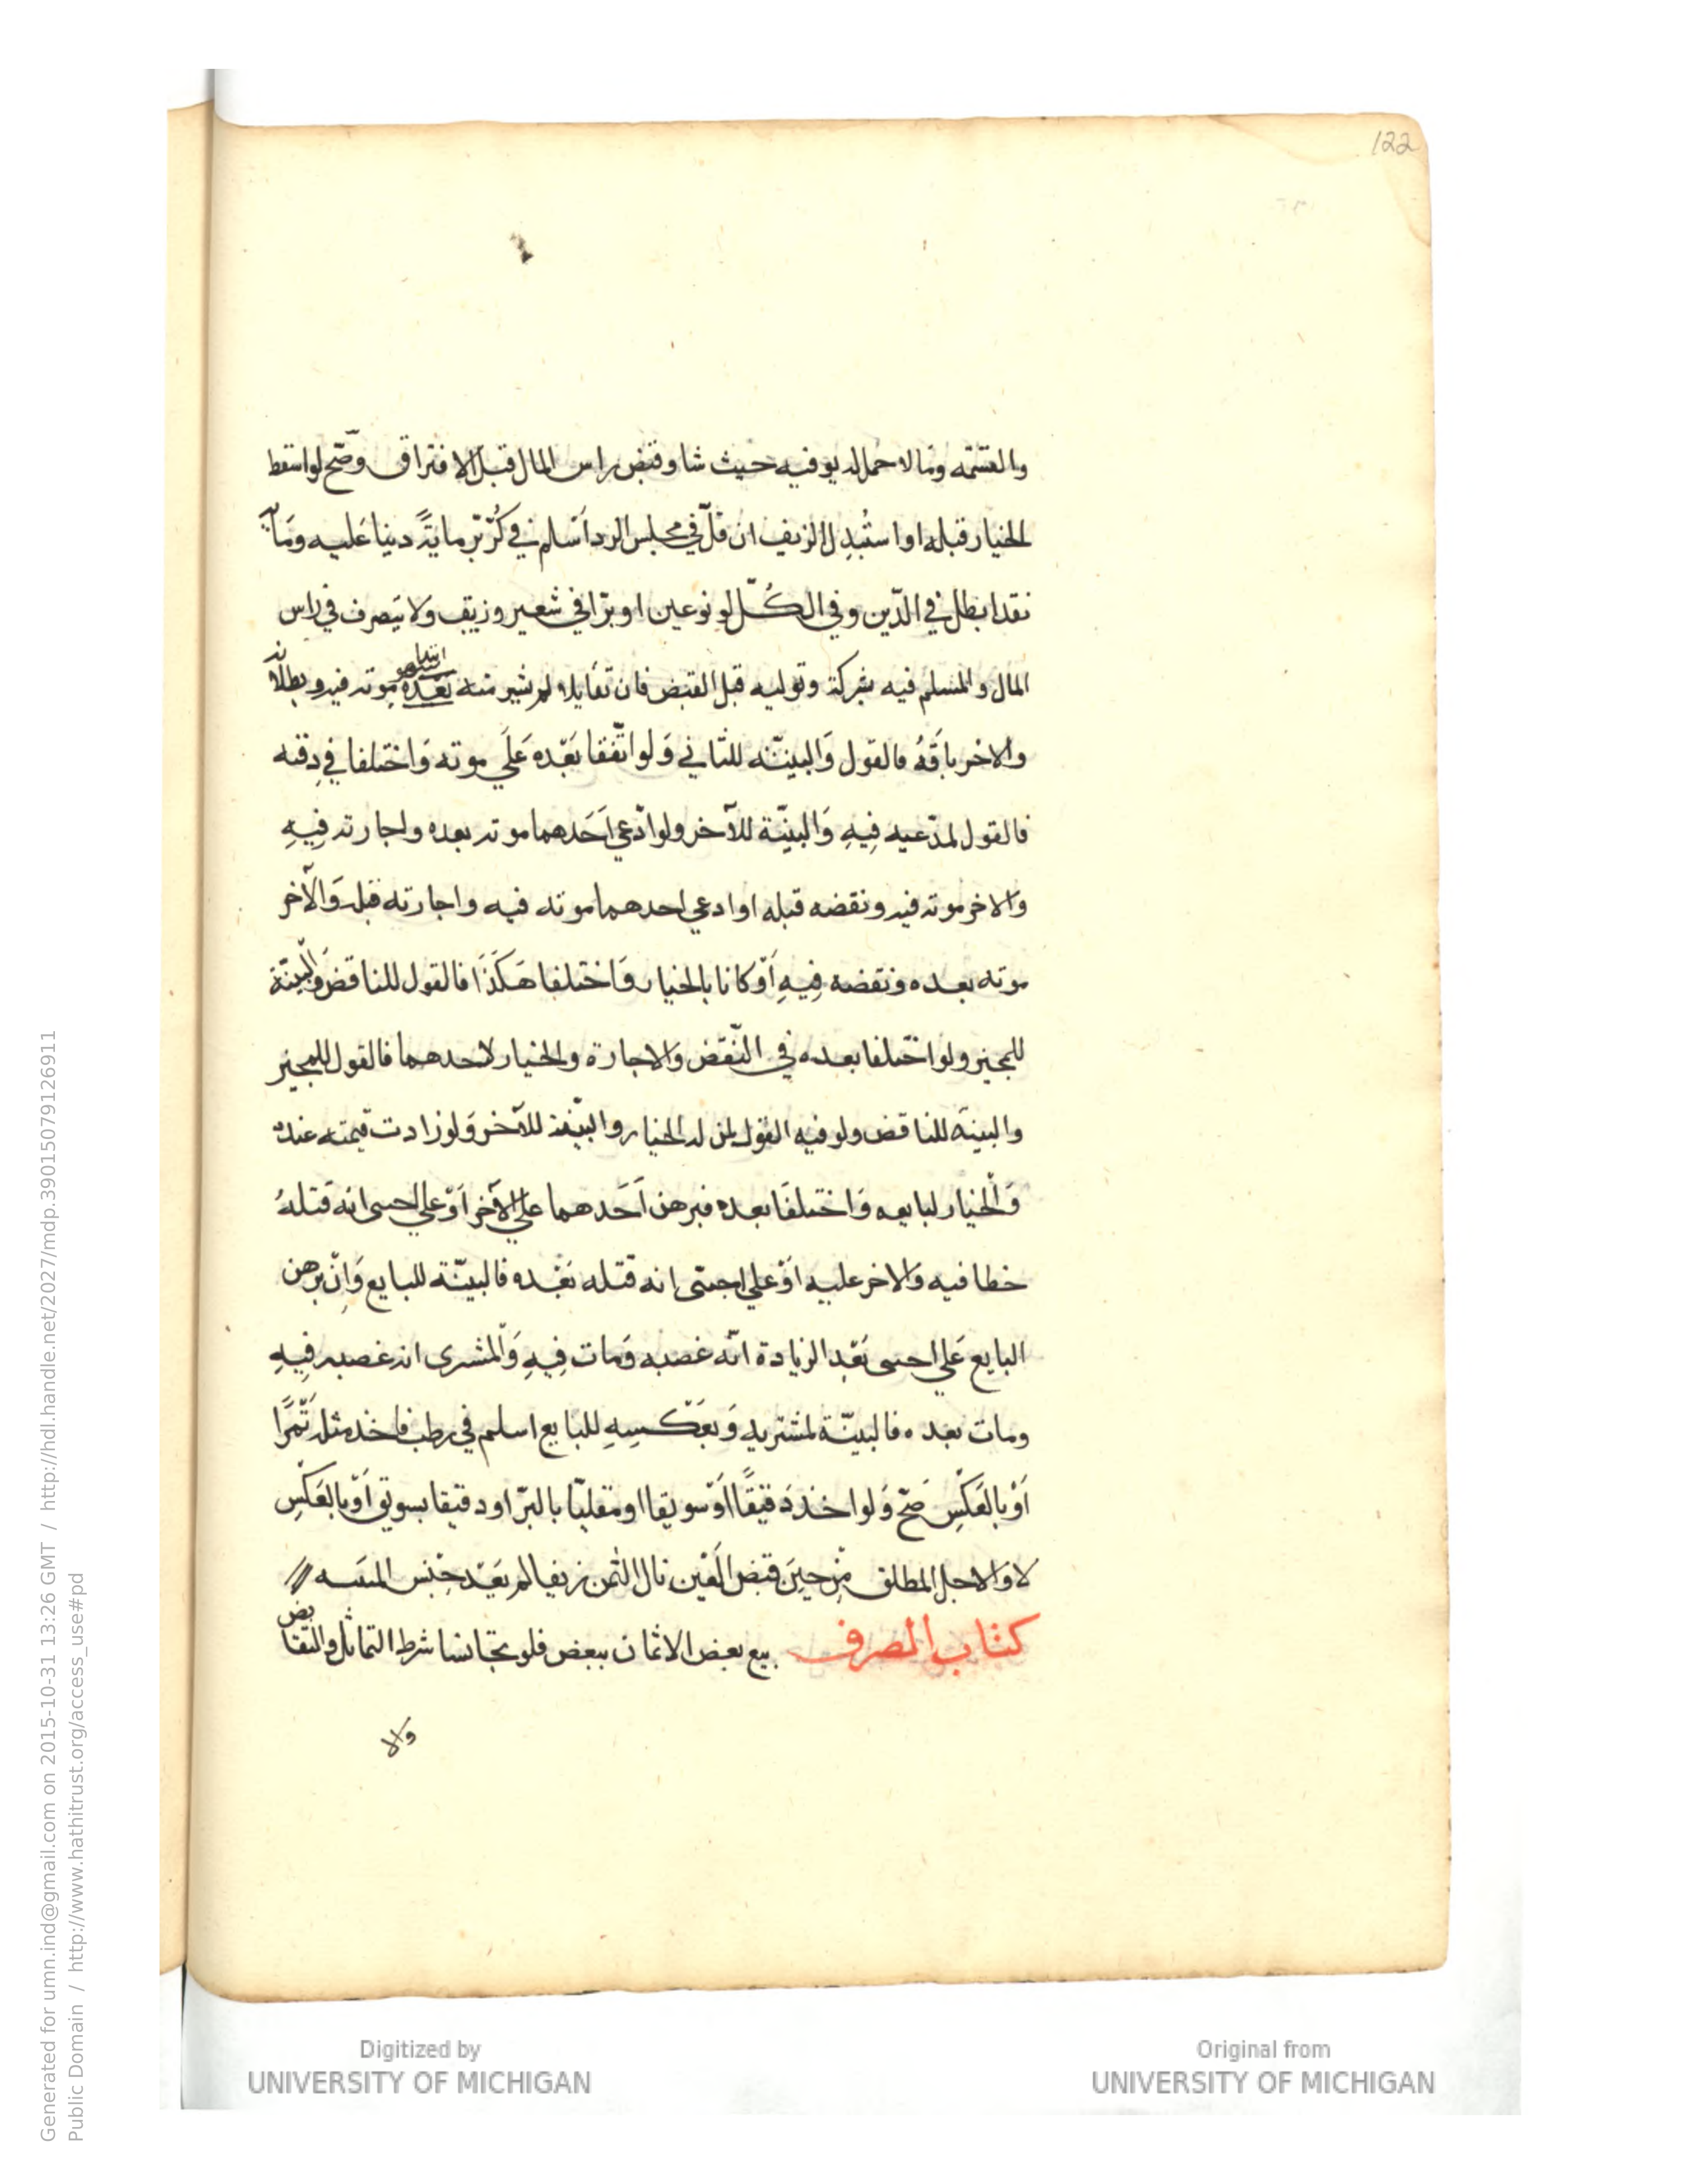 122
والقسمة وما لا حمل له يوفيه حيث شا وقبض راس المال قبل الافتراق وصّح لو اسقط
الخيار قبله او استُبدِل الزيف ان قلّ في مجلس الرد اَسلم في كُرّ بّر مايةً دينا عَليه ومَاية
نقدا بطل في الدّين وفي الكُلّ لو نوعين او برّا في شعير وزيف وَلا يَتصرف في راس
المال والمسلم فيه بشركة وتوليه قبل القبض فان تقايلا لم يشتر منه بَعْدَه موته فيه وبطلانه
والاخر باَقَهُ فالقول وَالبينّه للثاني وَلو اتّفقا بَعْده عَلَي موته وَاختلفا في وقته
فالقول لمدّعيه فِيهِ وَالبينّة للآخر ولو ادّعي اَحَدهما موته بعده واجازته فِيهِ
والاخر موته فيه ونقضه قبله او ادعي احدهما موته فيه واجازته قبله وَالآخر
موته بعده ونقضه فِيهِ اَوْ كانا بالخيار وَاختلفا هَكَذَا فالقول للناقض وَالْبيّنة
للمجيز ولو اختلفا بعده في النّقض والاجازة والخيار لاحدهما فالقول للمجيز
والبينَة للناقض ولو فيه القول لمن له الخيار والبيّنة للآخر وَلو زادت قيمته عنده
وَالْخيار لبايعه وَاختلفَا بعده فبرهن اَحَدهما علي الآخر اَوْ علي اجنبى انه قَتلهُ
خطا فيه والاخر عليه اَوْ علي اجنبى انه قتله بَعْده فالبينّة للبايع وَاِنْ برهن
البايع عَلي اجنبى بَعْد الزيادة انّه غصبه وَمات فِيهِ وَالْمشترى انه غصبه فِيهِ
ومات بعده فالبينّة لمشتريه وَبعَكْسِهِ للبايع اسلم في رطب فاخذ مثله تَمْرًا
اَوْ بالعَكْسِ صَحّ وَلو اخذ دَقيقًا اَوْ سويقا او مقليّا بالبرّ او دقيقا بسويق اَوْ بالعَكْسِ
لا وَالاجل المطلق مِنْ حِينَ قبض الْعَيْن نال الثمن زيفا لم يَعُدْ حبْس المبيع
كتاب الصرف بيع بعض الاثمان ببعض فلو تجانسا شرط التماثل والتقابض
والا
Generated for umn.ind@gmail.com on 2015-10-31 13:26 GMT / http://hdl.handle.net/2027/mdp.39015079126911
Public Domain / http://www.hathitrust.org/access_use#pd
Digitized by
UNIVERSITY OF MICHIGAN
Original from
UNIVERSITY OF MICHIGAN